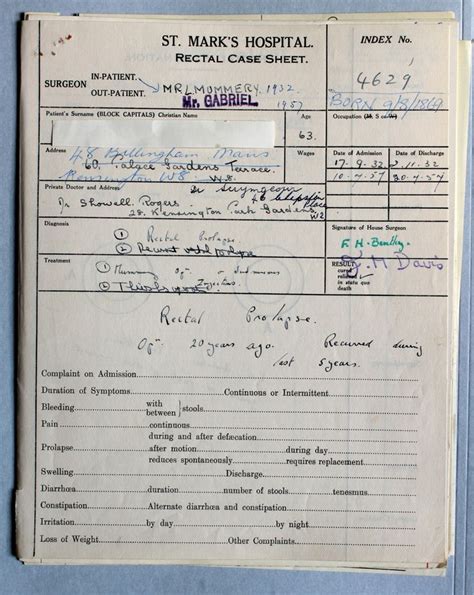 ST. MARK'S HOSPITAL.
RECTAL CASE SHEET.
INDEX No.
4629
SURGEON
IN-PATIENT.
OUT-PATIENT.
MR L. MUMMERY. 1932
Mr. GABRIEL. 1957
BORN 9/8/1869
Patient's Surname (BLOCK CAPITALS) Christian Name
Age
63.
Occupation (M. S or W)
Address
48 Bullingham Mans
60, Palace Gardens Terrace.
Kensington W8. W.8.
Wages
Date of Admission
Date of Discharge
17.9.32
2.11.32
10.4.57
30.4.57
Private Doctor and Address
Dr Showell Rogers.
28 Kensington Park Gardens
Place W2
Diagnosis
① Rectal Prolapse
Signature of House Surgeon
F. H. Bentley.
H Davis
Treatment
① Mummery Op.
Injections
RESULT
cured
relieved
in statu quo
death
Rectal Prolapse.
Op: 20 years ago. Recurred during
last 5 years.
Complaint on Admission
Duration of Symptoms Continuous or Intermittent
Bleeding with between } stools
Pain continuous
during and after defæcation
Prolapse after motion during day
reduces spontaneously requires replacement
Swelling Discharge
Diarrhœa duration number of stools tenesmus
Constipation Alternate diarrhœa and constipation
Irritation by day by night
Loss of Weight Other Complaints